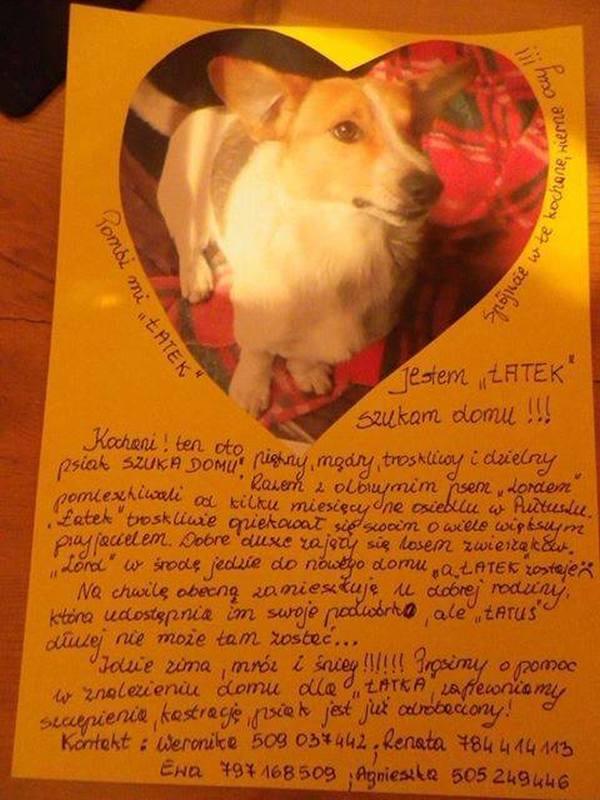 Spójrzcie w te kochane, wierne oczy!!!
mi „ŁATEK"
Jestem „ŁATEK"
szukam domu !!!
Kochani! ten oto piękny, mądry, troskliwy i dzielny
psiak SZUKA DOMU"
Razem z olbrzymim psem „Lordem"
pomieszkiwali od kilku miesięcy na osiedlu w Pułtusku.
„Łatek" troskliwie opiekował się swoim o wiele większym
przyjacielem. Dobre dusze zajęły się losem zwierzaków.
„Lord" w środę jedzie do nowego domu „a ŁATEK zostaje
Na chwilę obecną zamieszkuję u dobrej rodziny,
która udostępnia im swoje podwórko, ale „ŁATUŚ
dłużej nie może tam zostać"...
Idzie zima, mróz i śnieg!!!!!! Prosimy o pomoc
w znalezieniu domu dla „ŁATKA", zapewniamy
szczepienia, kastrację, psiak jest już odrobaczony!
Kontakt: Weronika 509 037442; Renata 784 414 113
Ewa 797168509; Agnieszka 505 249446